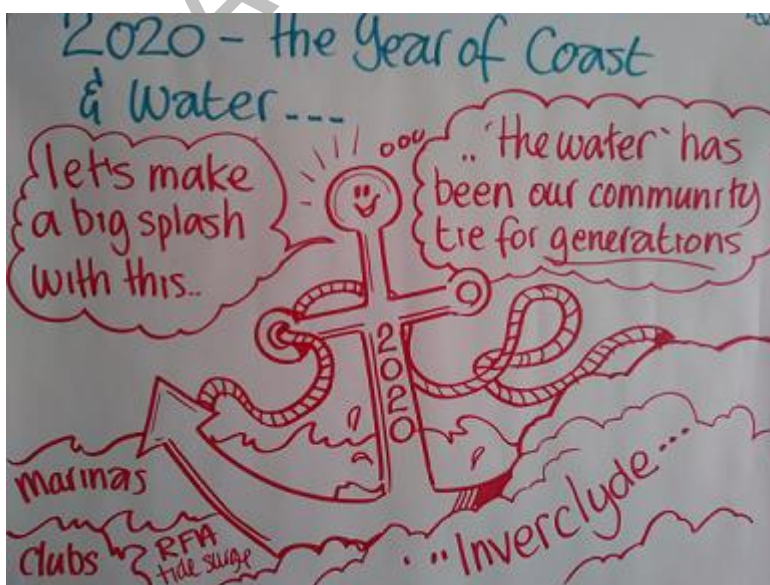 2020 - the Year of Coast
& Water ---
let's make
a big splash
with this..
.. 'the water' has
been our community
tie for generations
2020
marinas
Clubs
RFIA
tide surge
...Inverclyde...